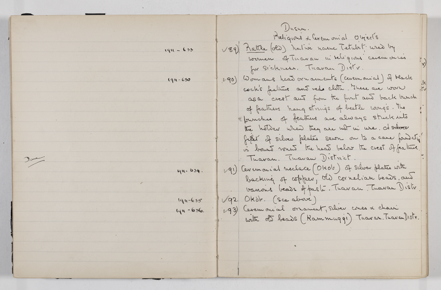 Dusun.
Religious & Ceremonial Objects
191-673 89) Rattle (old) native name Tatubit, used by
women of Tuaran in religious ceremonies
for sickness. Tuaran Distr.
90) Womans head ornaments (ceremonial) of black
cock's feathers and red cloth. These are worn
as a crest and from the front and back bunch
of feathers hang strings of beetle wings. The
bunches of feathers are always stuck into
the holder when they are not in use. A
fillet of silver plates sewn on to a
is bound round the head below the crest of feathers
Tuaran. Tuaran District.
91) Ceremonial necklace (Okob) of silver plates with
backing of copper; old cornelian beads, and
various beads of paste. Tuaran Tuaran Distr.
92 Okob. (see above)
93) Ceremonial ornament, silver cones & chain
with old beads (Kamuggi) Tuaran. Tuaran Distr.